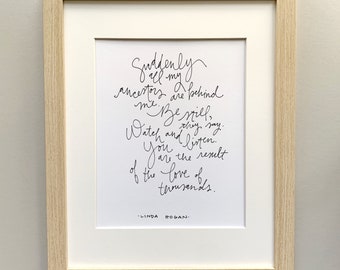 Suddenly
all my
ancestors are behind
me. Be still,
they say.
Watch and listen.
You
are the result
of the love of
thousands.
-LINDA HOGAN-